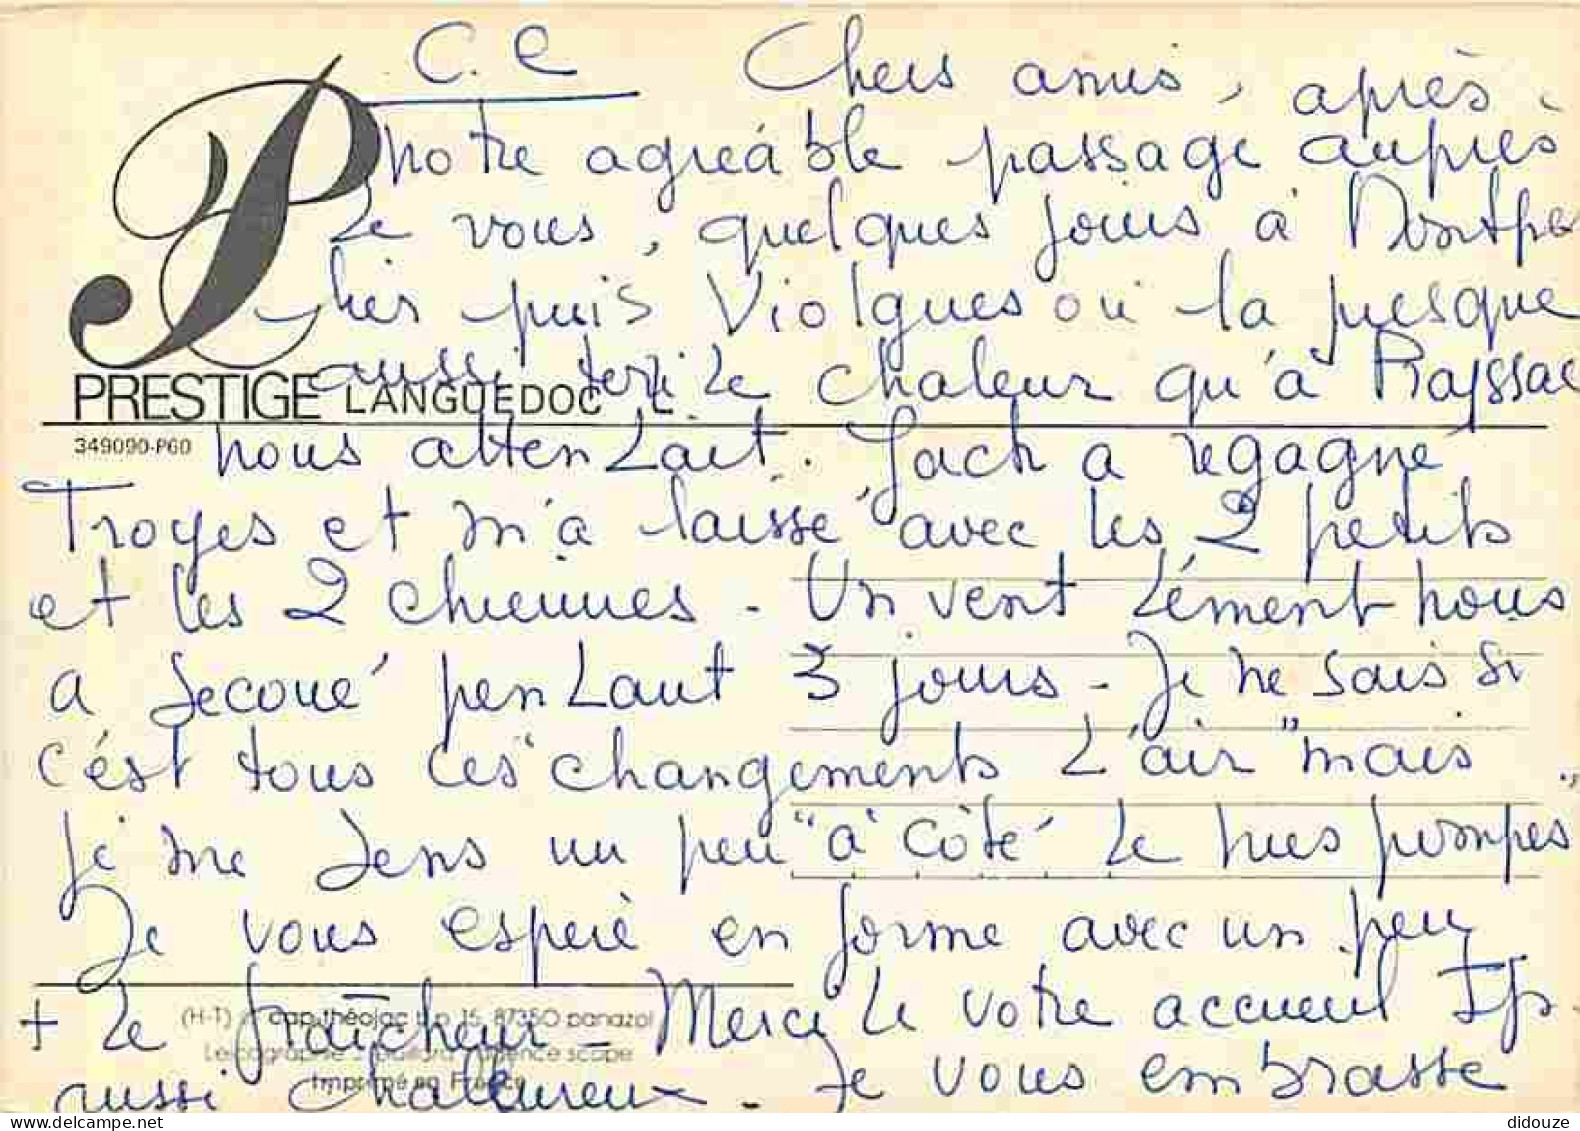 C.C Chers amis, après
notre agréable passage auprès
de vous, quelques jours à Montpel
lier puis Violgues où la presque
aussi terrible chaleur qu'à Rayssac
PRESTIGE LANGUEDOC
349090-P60 nous attendait. Jack a regagné
Troyes et m'a laissé avec les 2 petits
et les 2 chiennes - Un vent dément nous
a secoué pendant 3 jours - Je ne sais si
c'est tous ces "changements d'air" mais
je me sens un peu "à côté de mes pompes"
Je vous espère en forme avec un peu
+ de fraîcheur - Merci de votre accueil tjs
(H-T) cap-théojac b.p. 15, 87350 panazol
aussi chaleureux - Je vous embrasse
Imprimé en France
didouze